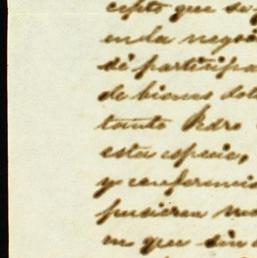 cepto que se
en la negoci
de participa
de bienes dota
tanto Pedro
esta especie,
y conferencia
pusieron
en que sin